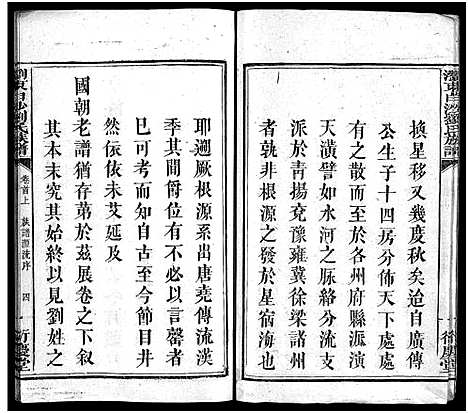 瀏東白沙劉氏族譜
換星移又幾度秋矣迨自廣傳
公生子十四房分佈天下處處
有之散而至於各州府縣派演
天潢譬如水河之脈絡分支
於是青揚兗豫雍冀徐梁諸州
之外其根發源不啻於星宿海也
耶溯厥根源系出唐堯傳流漢
季其間爵位科甲有不可以言罄者
巳可考而知也自古至今節目井
然依依未艾延及
國朝老譜猶存第於茲展卷之下叙
其本末究其始終以見劉姓之
卷首上
族譜源流序
四
衍慶堂